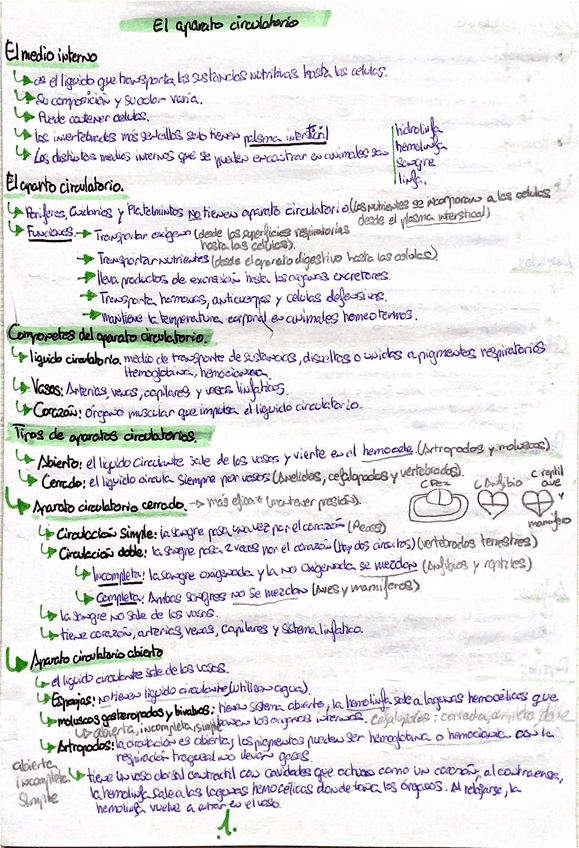 El aparato circulatorio
El medio interno
es el liquido que transporta las sustancias nutritivas hasta las celulas.
Su composición y su color varia.
Puede contener celulas.
los invertebrados más sencillos solo tienen plasma intersticial
Los distintos medios internos que se pueden encontrar en animales son
hidrolinfa
hemolinfa
sangre
linfa.
El aparto circulatorio.
Poriferos, Cnidarios y Platelmintos no tienen aparato circulatorio (Los nutrientes se incorporan a las celulas
desde el plasma intersticial)
Funciones → Transportar oxigeno (desde las superficies respiratorias
hasta las celulas).
Transportar nutrientes (desde el aparato digestivo hasta las celulas).
lleva productos de excresión hasta los organos excretores.
Transporta hormonas, anticuerpos y celulas defensivas.
mantiene la temperatura corporal en animales homeotermos.
Componetes del aparato circulatorio.
liquido circulatorio. medio de transporte de sustancias, disueltas o unidas a pigmentos respiratorios
Hemoglobina, hemocianina.
Vasos: Arterias, venas, capilares y vasos linfaticos.
Corazón: Órgano muscular que impulsa el liquido circulatorio.
Tipos de aparatos circulatorios.
Abierto: el liquido circulante sale de los vasos y vierte en el hemocele. (Artropodos y moluscos)
Cerrado: el liquido circula siempre por vasos (Anelidos, cefalopodos y vertebrados).
Aparato circulatorio cerrado. → más eficaz (mantener presión).
C Pez
C Anfibio
C reptil
ave
y
mamifero
Circulación simple: la sangre pasa una vez por el corazón (Peces)
Circulación doble: la sangre pasa 2 veces por el corazón (Hay dos circuitos) (vertebrados terrestres)
Incompleta: la sangre oxigenada y la no oxigenada se mezclan (Anfibios y reptiles)
Completa: Ambas sangres no se mezclan (Aves y mamiferos)
la sangre no sale de los vasos.
tiene corazón, arterias, venas, capilares y sistema linfatico.
Aparato circulatorio abierto
el liquido circulante sale de los vasos.
Esponjas: no tienen liquido circulante (utilizan agua).
moluscos gasteropodos y bivalvos: tienen sistema abierto, la hemolinfa sale a lagunas hemocélicas que
abierta, incompleta, simple
los organos internos. cefalopodos: cerrada,
Artropodos: la circulación es abierta, los pigmentos pueden ser hemoglobina o hemocianina. con la
respiración traqueal no llevan gases.
abierta,
incompleta
Simple
tiene un vaso dorsal contractil con cavidades que actuan como un corazón, al contraerse,
la hemolinfa sale a las lagunas hemocélicas donde los órganos. Al relajarse, la
hemolinfa vuelve a entrar en el vaso.
1.